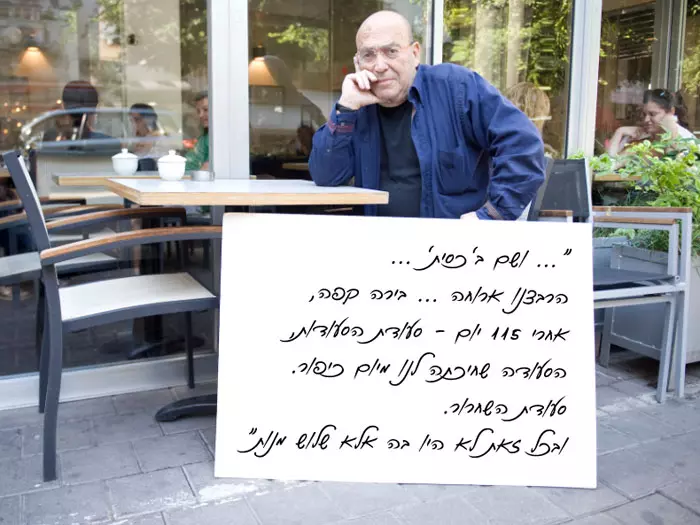 "... ושם ב'כסית' ...
הרבצנו ארוחה ... בירה קפה,
אחרי 115 יום - סעודת הסעודות,
הסעודה שחיכתה לנו מיום כיפור.
סעודת השחרור.
ובכל זאת לא היו בה אלא שלוש מנות"